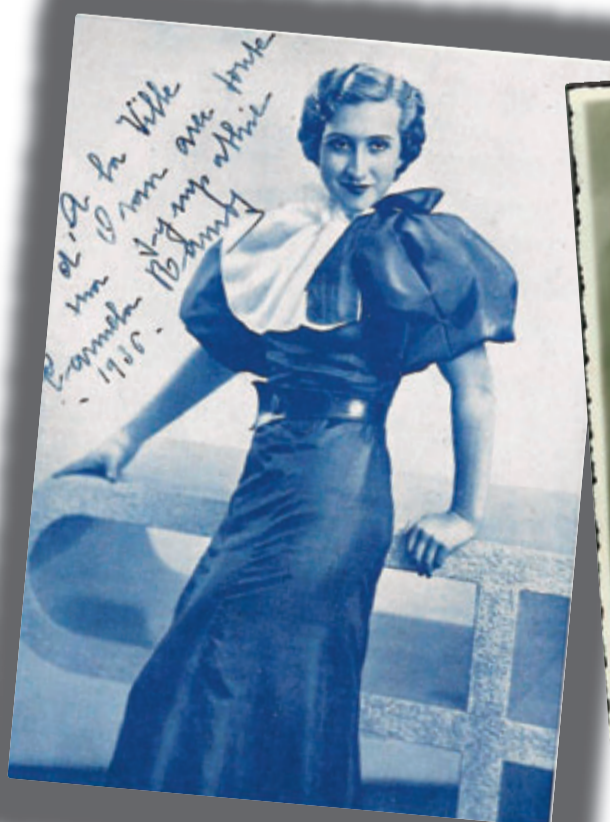 A la Ville
d'Oran avec toute
ma sympathie
Carmela
- 1936 -